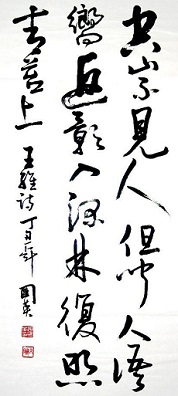 空山不見人但聞人語
嚮返影入深林復照
青苔上 王維詩 丁丑年